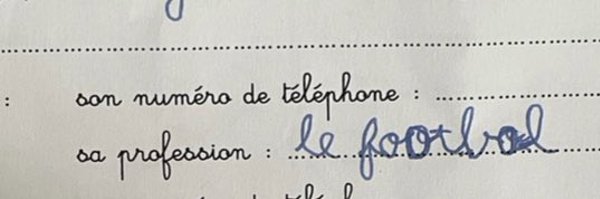 son numéro de téléphone :
sa profession : le footbol